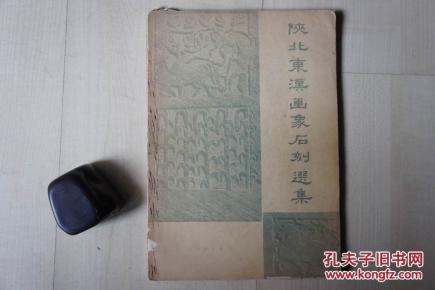 陝北東漢画象石刻選集
孔夫子旧书网
www.kongfz.com